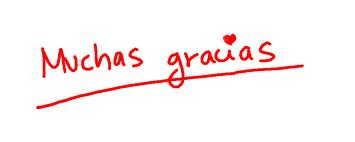 Muchas gracias